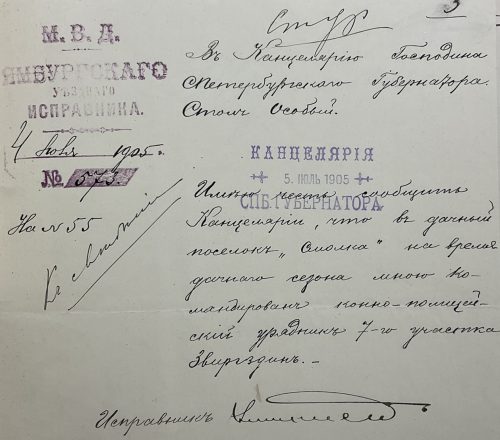 3
М. В. Д.
ЯМБУРГСКАГО
УѢЗДНАГО
ИСПРАВНИКА.
4 Іюля 1905 г.
№ 573
На № 55
Въ Канцелярію Господина
СПетербургскаго Губернатора.
Столъ Особый.
КАНЦЕЛЯРІЯ
5. ІЮЛЬ 1905
СПБ. ГУБЕРНАТОРА.
Имѣю честь сообщить
Канцеляріи, что въ дачный
поселокъ „Смолка" на время
дачнаго сезона мною ко-
мандированъ конно-полицей-
скій урядникъ 7-го участка
Звиргздинъ. –
Исправникъ